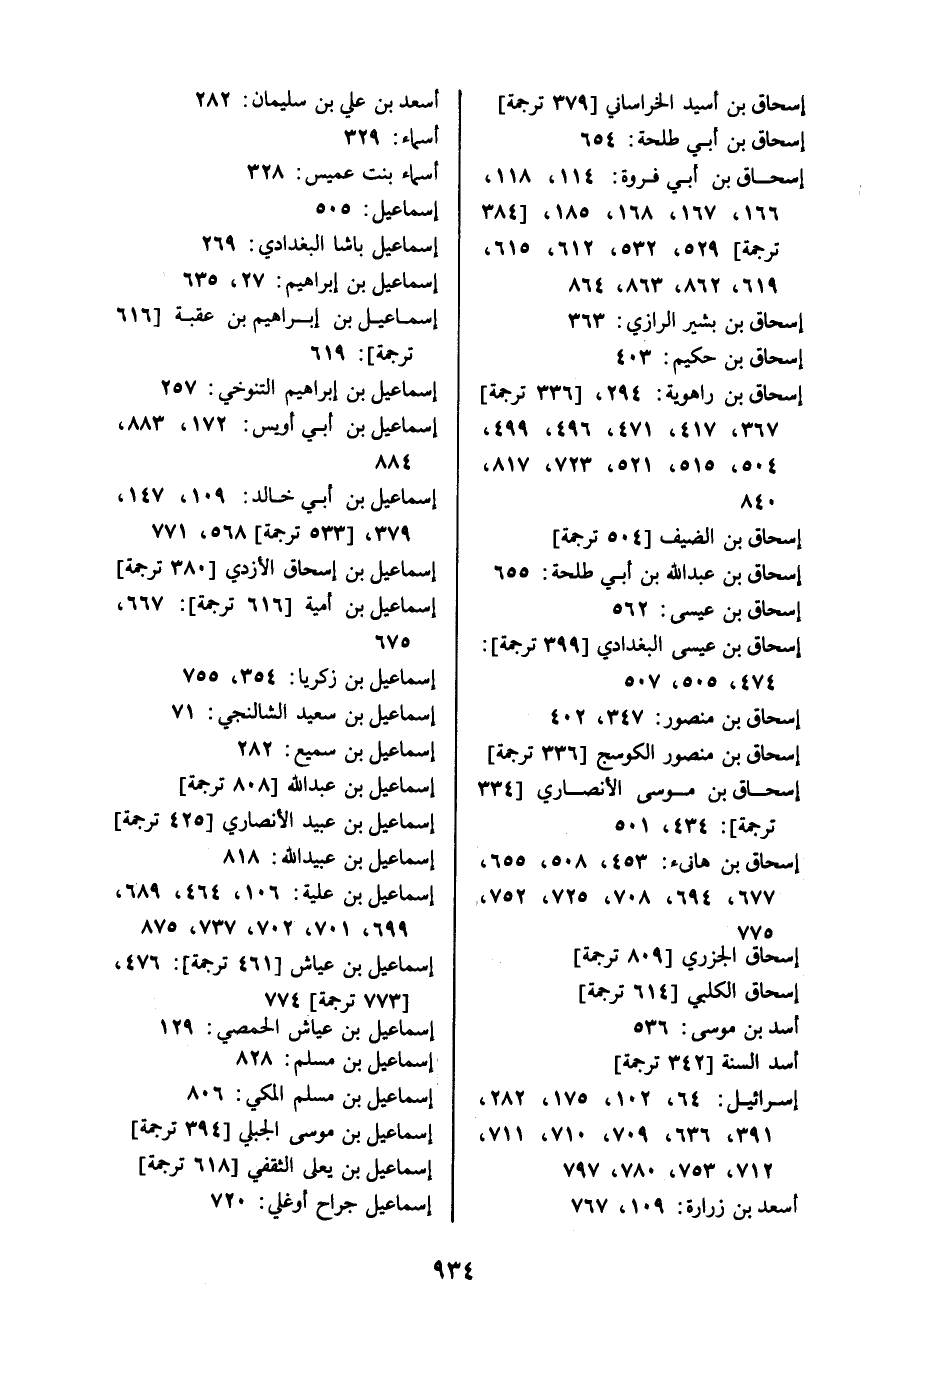 إسحاق بن أسيد الخراساني [٣٧٩ ترجمة]
إسحاق بن أبي طلحة: ٦٥٤
إسحاق بن أبي فروة: ١١٤، ١١٨،
١٦٦، ١٦٧، ١٦٨، ١٨٥، [٣٨٤
ترجمة] ٥٢٩، ٥٣٢، ٦١٢، ٦١٥،
٦١٩، ٨٦٢، ٨٦٣، ٨٦٤
إسحاق بن بشير الرازي: ٣٦٣
إسحاق بن حكيم: ٤٠٣
إسحاق بن راهوية: ٢٩٤، [٣٣٦ ترجمة]
٣٦٧، ٤١٧، ٤٧١، ٤٩٦، ٤٩٩،
٥٠٤، ٥١٥، ٥٢١، ٧٢٣، ٨١٧،
٨٤٠
إسحاق بن الضيف [٥٠٤ ترجمة]
إسحاق بن عبدالله بن أبي طلحة: ٦٥٥
إسحاق بن عيسى: ٥٦٢
إسحاق بن عيسى البغدادي [٣٩٩ ترجمة]:
٤٧٤، ٥٠٥، ٥٠٧
إسحاق بن منصور: ٣٤٧، ٤٠٢
إسحاق بن منصور الكوسج [٣٣٦ ترجمة]
إسحاق بن موسى الأنصاري [٣٣٤
ترجمة]: ٤٣٤، ٥٠١
إسحاق بن هانىء: ٤٥٣، ٥٠٨، ٦٥٥،
٦٧٧، ٦٩٤، ٧٠٨، ٧٢٥، ٧٥٢،
٧٧٥
إسحاق الجزري [٨٠٩ ترجمة]
إسحاق الكلبي [٦١٤ ترجمة]
أسد بن موسى: ٥٣٦
أسد السنة [٣٤٢ ترجمة]
إسرائيل: ٦٤، ١٠٢، ١٧٥، ٢٨٢،
٣٩١، ٦٣٦، ٧٠٩، ٧١٠، ٧١١،
٧١٢، ٧٥٣، ٧٨٠، ٧٩٧
أسعد بن زرارة: ١٠٩، ٧٦٧
أسعد بن علي بن سليمان: ٢٨٢
أسماء: ٣٢٩
أسماء بنت عميس: ٣٢٨
إسماعيل: ٥٠٥
إسماعيل باشا البغدادي: ٢٦٩
إسماعيل بن إبراهيم: ٢٧، ٦٣٥
إسماعيل بن إبراهيم بن عقبة [٦١٦
ترجمة]: ٦١٩
إسماعيل بن إبراهيم التنوخي: ٢٥٧
إسماعيل بن أبي أويس: ١٧٢، ٨٨٣،
٨٨٤
إسماعيل بن أبي خالد: ١٠٩، ١٤٧،
٣٧٩، [٥٣٣ ترجمة] ٥٦٨، ٧٧١
إسماعيل بن إسحاق الأزدي [٣٨٠ ترجمة]
إسماعيل بن أمية [٦١٦ ترجمة]: ٦٦٧،
٦٧٥
إسماعيل بن زكريا: ٣٥٤، ٧٥٥
إسماعيل بن سعيد الشالنجي: ٧١
إسماعيل بن سميع: ٢٨٢
إسماعيل بن عبدالله [٨٠٨ ترجمة]
إسماعيل بن عبيد الأنصاري [٤٢٥ ترجمة]
إسماعيل بن عبيدالله: ٨١٨
إسماعيل بن علية: ١٠٦، ٤٦٤، ٦٨٩،
٦٩٩، ٧٠١، ٧٠٢، ٧٣٧، ٨٧٥
إسماعيل بن عياش [٤٦١ ترجمة]: ٤٧٦،
[٧٧٣ ترجمة] ٧٧٤
إسماعيل بن عياش الحمصي: ١٢٩
إسماعيل بن مسلم: ٨٢٨
إسماعيل بن مسلم المكي: ٨٠٦
إسماعيل بن موسى الجبلي [٣٩٤ ترجمة]
إسماعيل بن يعلى الثقفي [٦١٨ ترجمة]
إسماعيل جراح أوغلي: ٧٢٠
٩٣٤